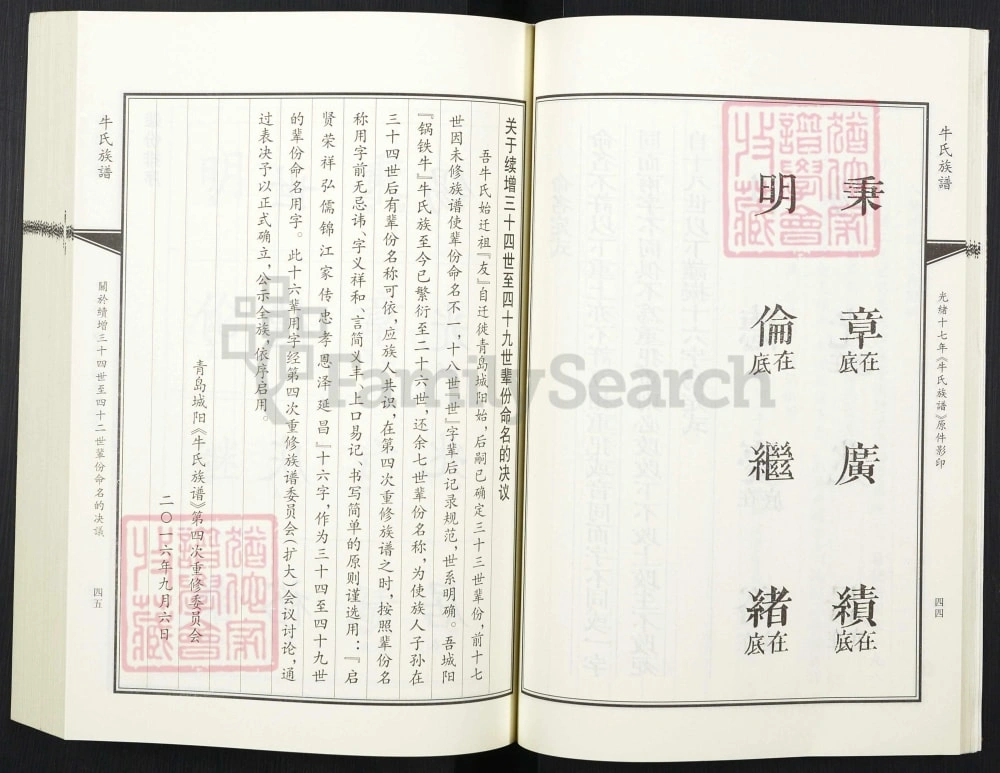 牛氏族譜
光緒十七年《牛氏族譜》原件影印
四四
秉
章
在底
廣
績
在底
明
倫
在底
繼
緒
在底
猶他家譜學會收藏
关于续增三十四世至四十九世辈份命名的决议
吾牛氏始迁祖『友』自迁徙青岛城阳始，后嗣已确定三十三世辈份，前十七
世因未修族谱使辈份命名不一，十八世『世』字辈后记录规范，世系明确。吾城阳
『锅铁牛』牛氏族至今已繁衍至二十六世，还余七世辈份名称，为使族人子孙在
三十四世后有辈份名称可依，应族人共识，在第四次重修族谱之时，按照辈份名
称用字前无忌讳、字义祥和、言简义丰、上口易记、书写简单的原则谨选用：『启
贤荣祥弘儒锦江家传忠孝恩泽延昌』十六字，作为三十四至四十九世
的辈份命名用字。此十六辈用字经第四次重修族谱委员会（扩大）会议讨论，通
过表决予以正式确立，公示全族，依序启用。
青岛城阳《牛氏族谱》第四次重修委员会
二〇一六年九月六日
猶他家譜學會收藏
牛氏族譜
關於續增三十四世至四十二世輩份命名的决議
四五
FamilySearch